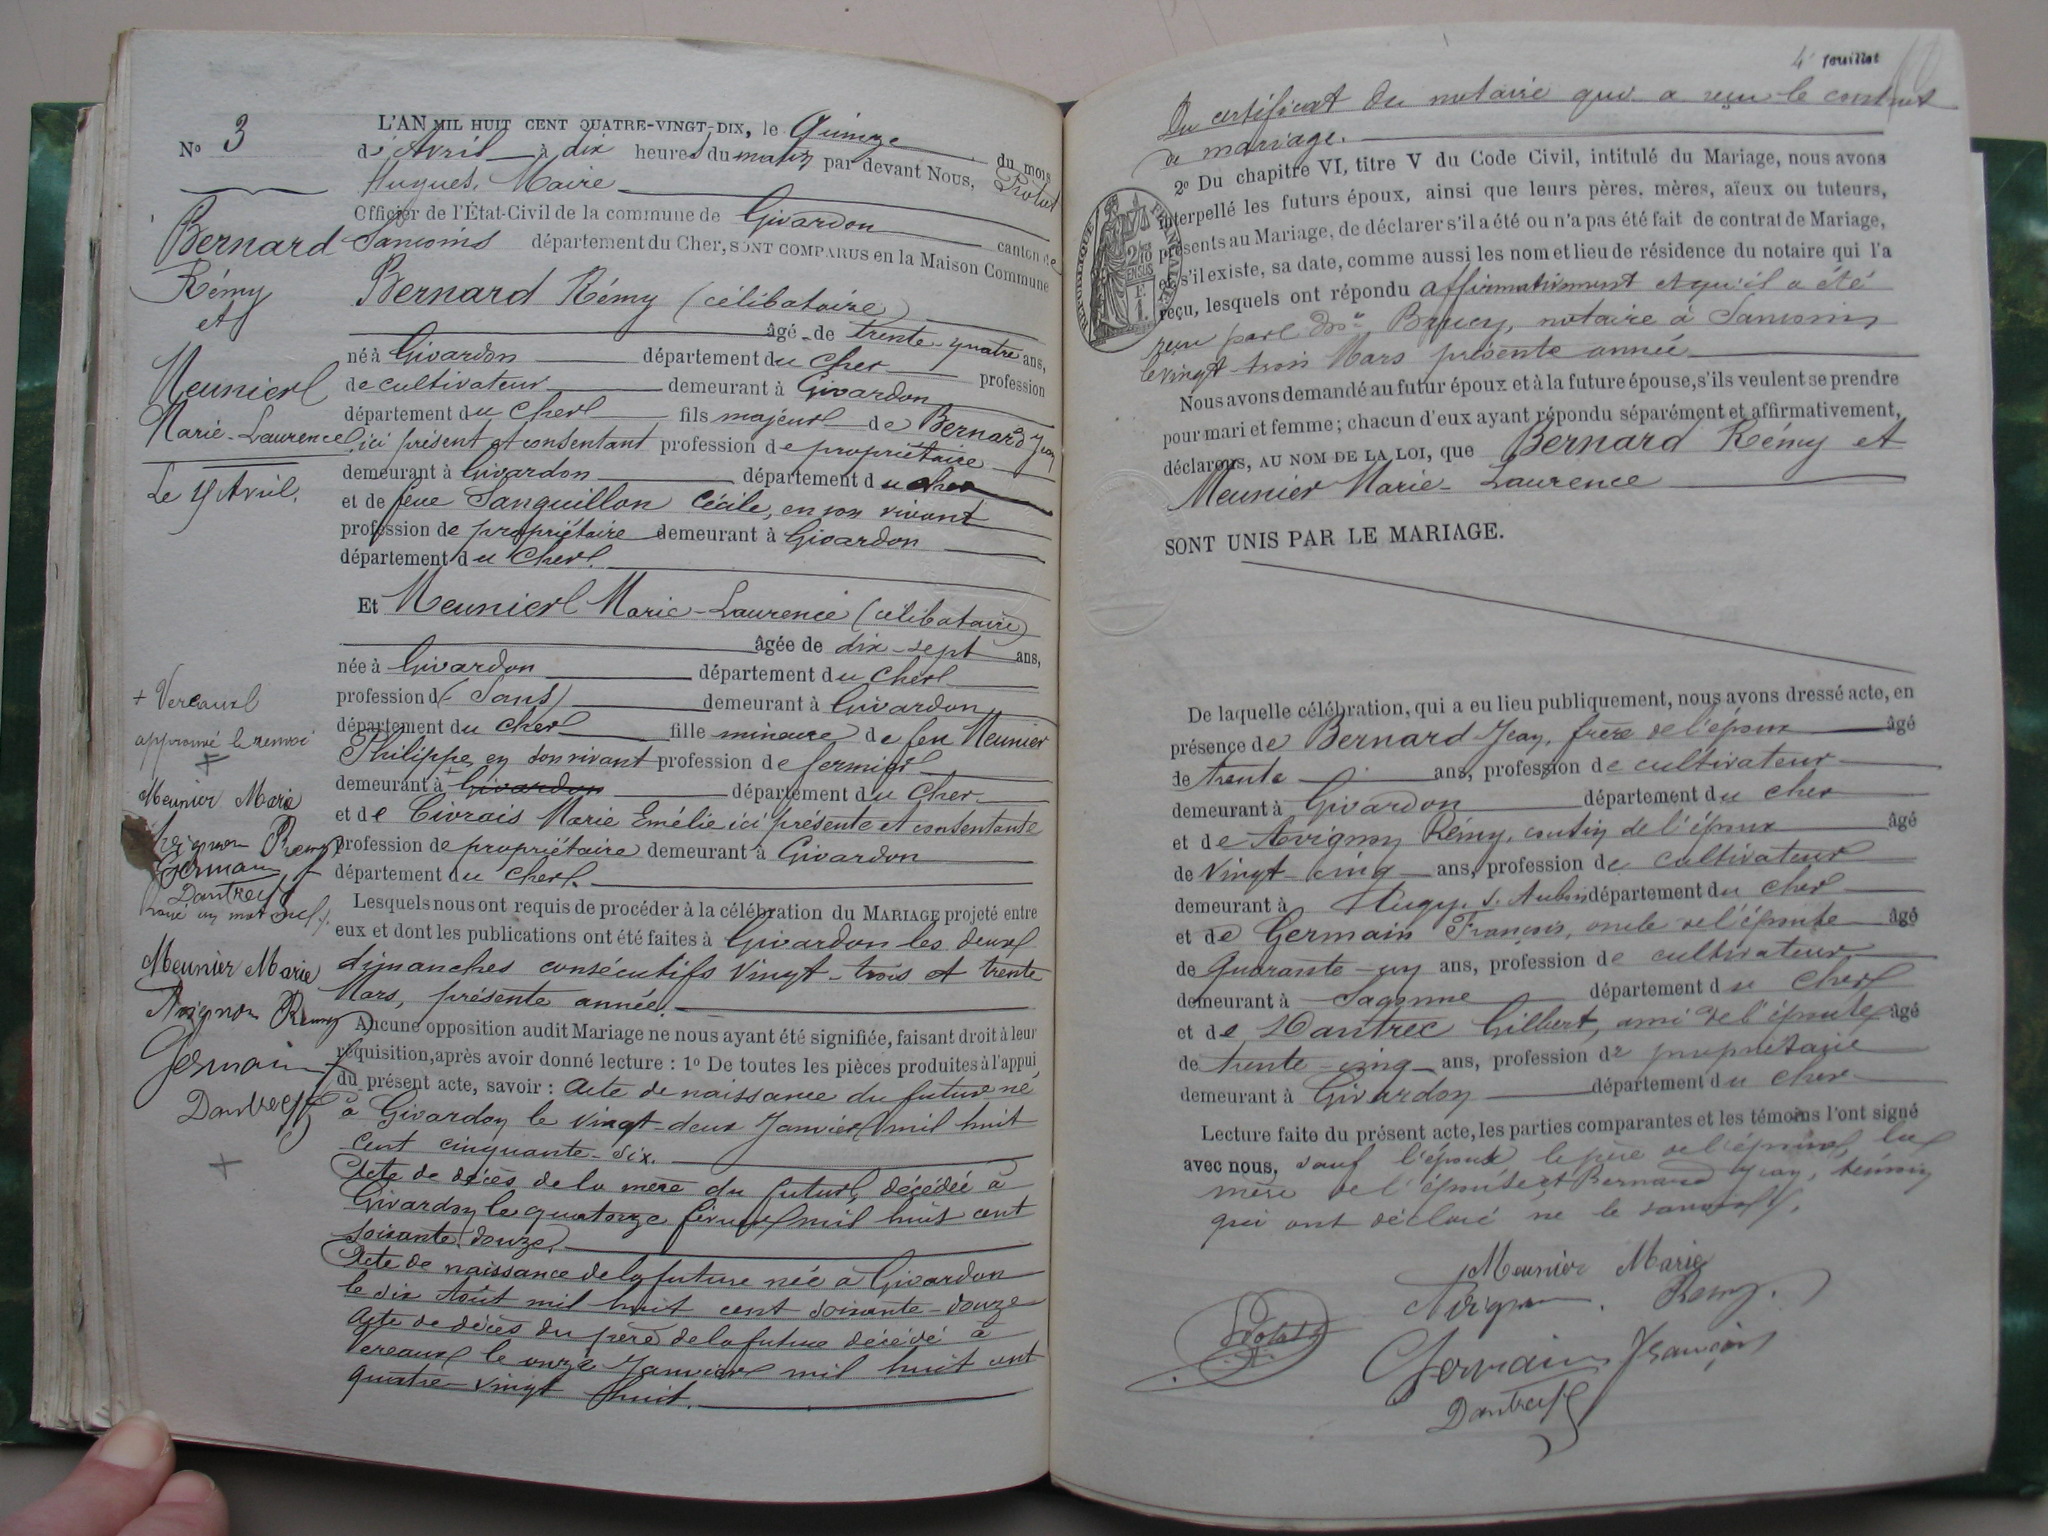 No 3
Bernard
Rémy
et
Meunier
Marie-Laurence
Le 15 Avril.
+ Vereaux
approuvé le renvoi
+
Meunier Marie
Avignon Remy
Germain f
Dautrec
Rayé un mot nul
Meunier Marie
Avignon Remy
Germain f
Dautrec
+
L'AN MIL HUIT CENT QUATRE-VINGT-DIX, le Quinze du mois
d'Avril à dix heures du matin par devant Nous, Protat
Hugues, Maire
Officier de l'État-Civil de la commune de Givardon canton de
Sancoins département du Cher, SONT COMPARUS en la Maison Commune
Bernard Rémy (célibataire)
âgé de trente-quatre ans,
né à Givardon département du Cher profession
de cultivateur demeurant à Givardon
département du Cher fils majeur de Bernard Jean
ici présent et consentant profession de propriétaire
demeurant à Givardon département du Cher
et de feue Sanguillon Cécile, en son vivant
profession de propriétaire demeurant à Givardon
département du Cher.
Et Meunier Marie-Laurence (célibataire)
âgée de dix-sept ans,
née à Givardon département du Cher
profession d (Sans) demeurant à Givardon
département du Cher fille mineure de feu Meunier
Philippe, en son vivant profession de fermier
demeurant à + Givardon département du Cher
et de Civrais Marie Emélie ici présente et consentante
profession de propriétaire demeurant à Givardon
département du Cher.
Lesquels nous ont requis de procéder à la célébration du MARIAGE projeté entre
eux et dont les publications ont été faites à Givardon les deux
dimanches consécutifs vingt-trois et trente
Mars, présente année.
Aucune opposition audit Mariage ne nous ayant été signifiée, faisant droit à leur
réquisition, après avoir donné lecture : 1o De toutes les pièces produites à l'appui
du présent acte, savoir : Acte de naissance du futur né
à Givardon le vingt-deux Janvier mil huit
cent cinquante-six.
Acte de décès de la mère du futur, décédée à
Givardon le quatorze février mil huit cent
soixante douze.
Acte de naissance de la future née à Givardon
le six Août mil huit cent soixante-douze
Acte de décès du père de la future décédé à
Vereaux le onze Janvier mil huit cent
quatre-vingt huit.
4e feuillet
Du certificat du notaire qui a reçu le contrat
de mariage.
2o Du chapitre VI, titre V du Code Civil, intitulé du Mariage, nous avons
interpellé les futurs époux, ainsi que leurs pères, mères, aïeux ou tuteurs,
présents au Mariage, de déclarer s'il a été ou n'a pas été fait de contrat de Mariage,
et s'il existe, sa date, comme aussi les nom et lieu de résidence du notaire qui l'a
reçu, lesquels ont répondu affirmativement et qu'il a été
reçu par Me Brucy, notaire à Sancoins
le vingt-trois Mars présente année
Nous avons demandé au futur époux et à la future épouse, s'ils veulent se prendre
pour mari et femme ; chacun d'eux ayant répondu séparément et affirmativement,
déclarons, AU NOM DE LA LOI, que Bernard Rémy et
Meunier Marie-Laurence
SONT UNIS PAR LE MARIAGE.
De laquelle célébration, qui a eu lieu publiquement, nous avons dressé acte, en
présence de Bernard Jean, frère de l'époux âgé
de trente ans, profession de cultivateur
demeurant à Givardon département du Cher
et de Avignon Rémy, cousin de l'époux âgé
de vingt-cinq ans, profession de cultivateur
demeurant à Augy. s. Aubois département du Cher
et de Germain François, oncle de l'épouse âgé
de Quarante-un ans, profession de cultivateur
demeurant à Sagonne département du Cher
et de Dautrec Gilbert, ami de l'épouse âgé
de trente-cinq ans, profession de propriétaire
demeurant à Givardon département du Cher
Lecture faite du présent acte, les parties comparantes et les témoins l'ont signé
avec nous, sauf l'époux le père de l'époux, la
mère de l'épouse et Bernard Jean, témoin
qui ont déclaré ne le savoir.
Meunier Marie
Avignon Remy.
Protat
Germain François
Dautrec